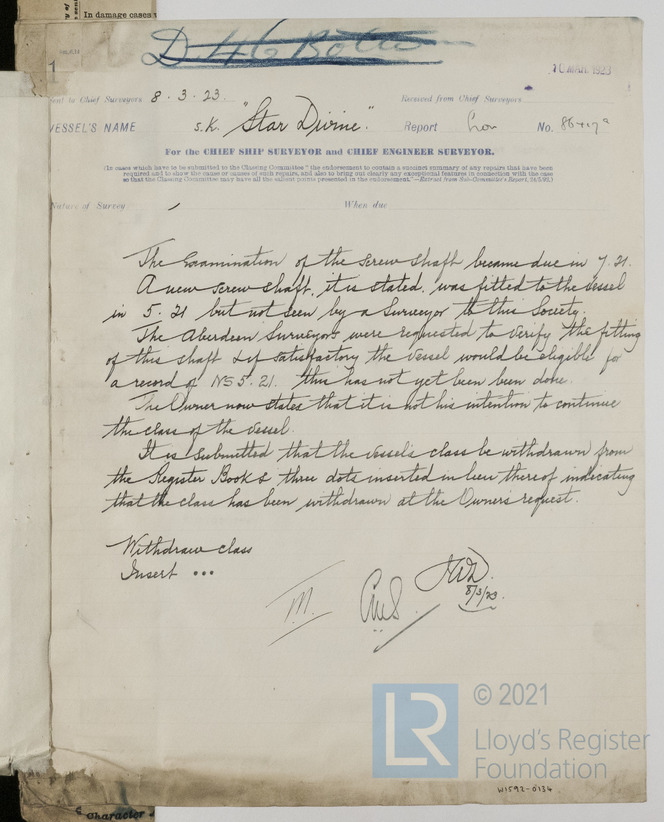 In damage cases
D 46 Botto
1
10 MAR. 1923
Sent to Chief Surveyors 8.3.23. Received from Chief Surveyors
VESSEL'S NAME S.K. "Star Divine." Report Lon No. 86479a
For the CHIEF SHIP SURVEYOR and CHIEF ENGINEER SURVEYOR.
(In cases which have to be submitted to the Classing Committee "the endorsement to contain a succinct summary of any repairs that have been
required and to show the cause or causes of such repairs, and also to bring out clearly any exceptional features in connection with the case
so that the Classing Committee may have all the salient points presented in the endorsement."—Extract from Sub-Committee's Report,
Nature of Survey / When due
The Examination of the screw shaft became due in 7.21.
A new screw shaft, it is stated, was fitted to the vessel
in 5.21 but not seen by a Surveyor to this Society.
The Aberdeen Surveyors were requested to verify the fitting
of this shaft & if satisfactory the vessel would be eligible for
a record of NS 5.21. this has not yet been been done.
The Owner now states that it is not his intention to continue
the class of the vessel.
It is submitted that the vessel's class be withdrawn from
the Register Book & three dots inserted in lieu thereof indicating
that the class has been withdrawn at the Owner's request.
Withdraw class
Insert ...
8/3/23.
LR
© 2021
Lloyd's Register
Foundation
W1592-0134
Character